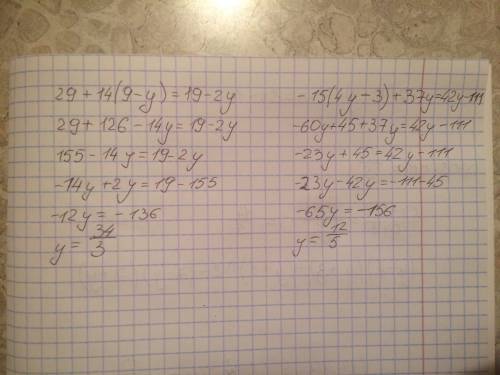 29 + 14(9-y) = 19-2y
29 + 126 - 14y = 19-2y
155 - 14y = 19-2y
-14y + 2y = 19 - 155
-12y = -136
y = 34/3
-15(4y-3) + 37y = 42y-111
-60y+45+37y = 42y-111
-23y + 45 = 42y-111
-23y-42y = -111-45
-65y = -156
y = 12/5